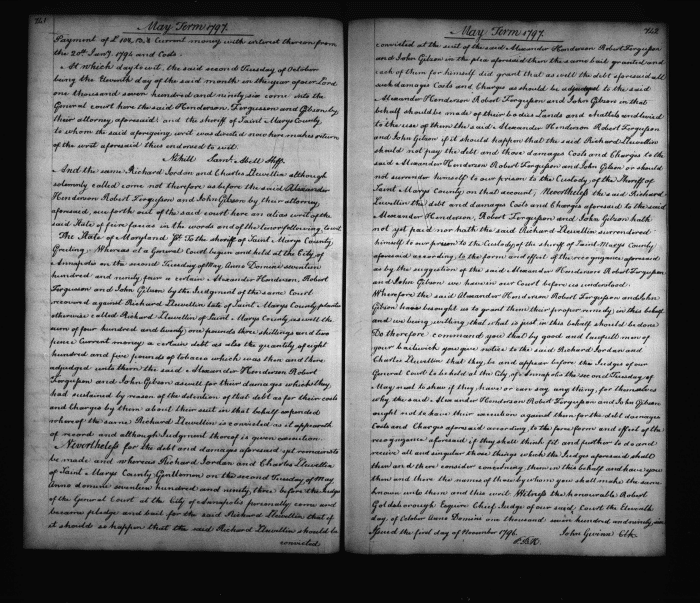 241
May Term 1797.
Payment of £ 108, 13, 2 Current money with interest thereon from
the 20th Jany. 1794 and Costs.
At which day to wit, the said second Tuesday of October
being the Eleventh day of the said month in the year of our Lord
one thousand seven hundred and ninety six come into the
General court here the said Henderson Fergusson and Gibson by
their attorney aforesaid: and the sheriff of Saint Marys County
to whom the aforegoing writ was directed now here makes return
of the writ aforesaid thus endorsed to wit
Nihill Saml. Abell Shff.
And the same Richard Jordon and Charles Llewellin although
solemnly called come not therefore as before the said Alexander
Henderson Robert Fergusson and John Gibson by their attorney
aforesaid, sue forth out of the said court here an alias writ of the
said State of fieri facias in the words and of the tenor following, to wit
The State of Maryland Sst. To the sheriff of Saint Marys County,
Greeting. Whereas at a General Court begun and held at the City of
Annapolis on the second Tuesday of May Anno Domini seventeen
hundred and ninety four a certain Alexander Henderson, Robert
Ferguson and John Gibson by the Judgment of the same Court
recovered against Richard Llewellin late of Saint Marys County planter
otherwise called Richard Llewellin of Saint Marys County, as well the
sum of four hundred and twenty one pounds three shillings and two
pence Current money a certain debt as also the quantity of eight
hundred and five pounds of tobacco which was then and there
adjudged unto them the said Alexander Henderson Robert
Ferguson and John Gibson as well for their damages which they
had sustained by reason of the detention of that debt as for their costs
and Charges by them about their suit in that behalf expended
whereof the same Richard Llewellin is convicted as it appeareth
of record and although Judgment thereof is given execution
Nevertheless for the debt and damages aforesaid yet remains to
be made and whereas Richard Jordan and Charles Llewellin
of Saint Marys County Gentlemen on the second Tuesday of May
anno domini seventeen hundred and ninety three before the Judges
of the General Court at the City of Annapolis personally come and
became pledge and bail for the said Richard Llewellin that if
it should so happen that the said Richard Llewellin should be
convicted
242
May Term 1797.
convicted at the suit of the said Alexander Henderson Robert Fergusson
and John Gibson in the plea aforesaid then the same bail granted and
each of them for himself did grant that as well the debt aforesaid all
such damages Costs and Charges as should be adjudged to the said
Alexander Henderson Robert Fergusson and John Gibson in that
behalf should be made of their bodies Lands and Chattels and levied
to the use of them the said Alexander Henderson Robert Fergusson
and John Gibson if it should happen that the said Richard Llewellin
should not pay the debt and those damages Costs and Charges to the
said Alexander Henderson Robert Fergusson and John Gibson or should
not surrender himself to our prison to the Custody of the Sheriff of
Saint Marys County on that account, Nevertheless the said Richard
Llewellin the debt and damages Costs and Charges aforesaid to the said
Alexander Henderson, Robert Fergusson and John Gibson hath
not yet paid nor hath the said Richard Llewellin surrendered
himself to our prison to the Custody of the sheriff of Saint Marys County
aforesaid according, to the form and effect of the recognizance aforesaid
as by the suggestion of the said Alexander Henderson Robert Fergusson
and John Gibson we have in our Court before us understood.
Wherefore the said Alexander Henderson Robert Fergusson and John
Gibson have besought us to grant them their proper remedy in this behalf
and we being willing that what is just in this behalf should be done
Do therefore command you that by good and lawfull men of
your bailiwick you give notice to the said Richard Jordan and
Charles Llewellin that they be and appear before the Judges of our
General Court to be held at the City of Annapolis the second Tuesday of
May next to shew if they have or can say any thing, for themselves
why the said Alexander Henderson Robert Fergusson and John Gibson
ought not to have their execution against them for the debt damages
Costs and Charges aforesaid according, to the force form and effect of the
recognizance aforesaid if they shall think fit and further to do and
receive all and singular those things which the Judges aforesaid shall
then and there consider concerning them in this behalf and have you
then and there the names of those by whom you shall make the same
known unto them and this writ. Witness the honourable Robert
Goldsborough Esquire Chief Judge of our said Court the Eleventh
day of October Anno Domini one thousand seven hundred and ninety six
Issued the first day of November 1796. John Gwinn Clk.